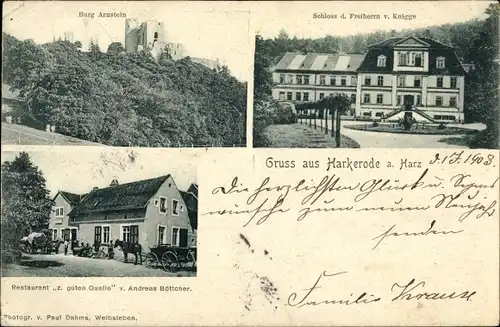 Burg Arnstein
Schloss d. Freiherrn v. Knigge
Gruss aus Harkerode a. Harz
d. 1. I. 1908.
Die herzlichsten Glück u. Segens
wünsche zum neuen Neujahr
senden
Familie Krause
Restaurant „z. guten Quelle" v. Andreas Böttcher.
Photogr. v. Paul Dahms, Welbsleben.